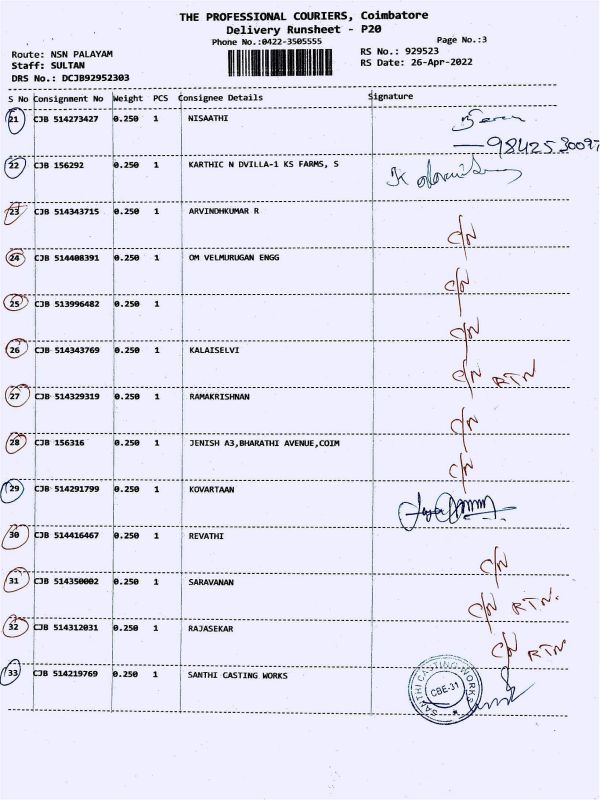 THE PROFESSIONAL COURIERS, Coimbatore
Delivery Runsheet - P20
Phone No.:0422-3505555 Page No.:3
Route: NSN PALAYAM RS No.: 929523
Staff: SULTAN RS Date: 26-Apr-2022
DRS No.: DCJB92952303
S No Consignment No Weight PCS Consignee Details Signature
21 CJB 514273427 0.250 1 NISAATHI
22 CJB 156292 0.250 1 KARTHIC N DVILLA-1 KS FARMS, S
23 CJB 514343715 0.250 1 ARVINDHKUMAR R C/N
24 CJB 514408391 0.250 1 OM VELMURUGAN ENGG C/N
25 CJB 513996482 0.250 1 C/N
26 CJB 514343769 0.250 1 KALAISELVI C/N RTN
27 CJB 514329319 0.250 1 RAMAKRISHNAN C/N
28 CJB 156316 0.250 1 JENISH A3,BHARATHI AVENUE,COIM C/N
29 CJB 514291799 0.250 1 KOVARTAAN
30 CJB 514416467 0.250 1 REVATHI C/N
31 CJB 514350002 0.250 1 SARAVANAN C/N RTN.
32 CJB 514312031 0.250 1 RAJASEKAR C/N RTN
33 CJB 514219769 0.250 1 SANTHI CASTING WORKS
SANTHI CASTING WORKS
CBE-31